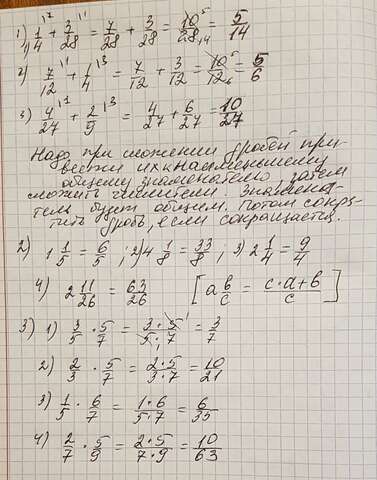 1) 1/4 + 3/28 = 7/28 + 3/28 = 10/28 = 5/14
2) 7/12 + 1/4 = 7/12 + 3/12 = 10/12 = 5/6
3) 4/27 + 2/9 = 4/27 + 6/27 = 10/27
Надо при сложении дробей при-
вести их к наименьшему
общему знаменателю, затем
сложить числители, знамена-
тель будет общим. Потом сокра-
тить дробь, если сокращается.
2) 1 1/5 = 6/5; 2) 4 1/8 = 33/8; 3) 2 1/4 = 9/4
4) 2 11/26 = 63/26 [a b/c = c·a+b/c]
3) 1) 3/5 · 5/7 = 3·5/5·7 = 3/7
2) 2/3 · 5/7 = 2·5/3·7 = 10/21
3) 1/5 · 6/7 = 1·6/5·7 = 6/35
4) 2/7 · 5/9 = 2·5/7·9 = 10/63